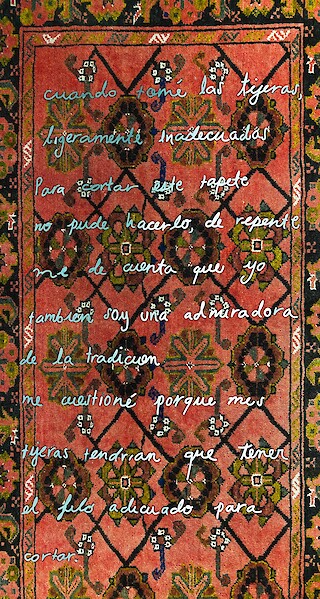 cuando tomé las tijeras,
ligeramente inadecuadas
Para cortar este tapete
no pude hacerlo, de repente
me de cuenta que yo
también soy una admiradora
de la tradicion
me cuestioné porque mis
tijeras tendrian que tener
el filo adecuado para
cortar.